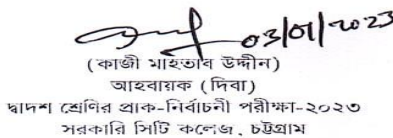 03/07/2023
(কাজী মাহতাব উদ্দীন)
আহবায়ক (দিবা)
দ্বাদশ শ্রেণির প্রাক-নির্বাচনী পরীক্ষা-২০২৩
সরকারি সিটি কলেজ, চট্টগ্রাম